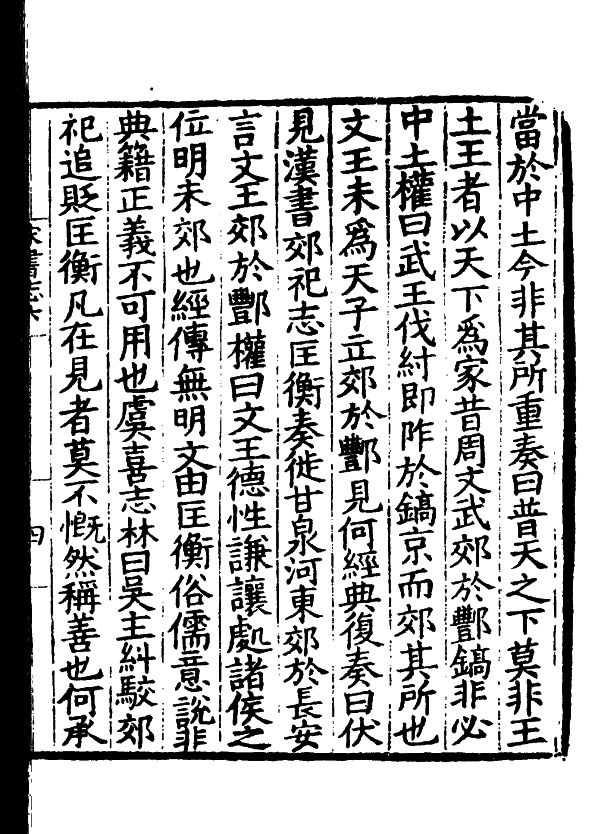 當於中土今非其所重奏曰普天之下莫非王
土王者以天下爲家昔周文武郊於酆鎬非必
中土權曰武王伐紂即阼於鎬京而郊其所也
文王未爲天子立郊於酆見何經典復奏曰伏
見漢書郊祀志匡衡奏徙甘泉河東郊於長安
言文王郊於酆權曰文王德性謙讓處諸侯之
位明未郊也經傳無明文由匡衡俗儒意說非
典籍正義不可用也虞喜志林曰吳主糾駁郊
祀追貶匡衡凡在見者莫不慨然稱善也何承
宋書志六
四